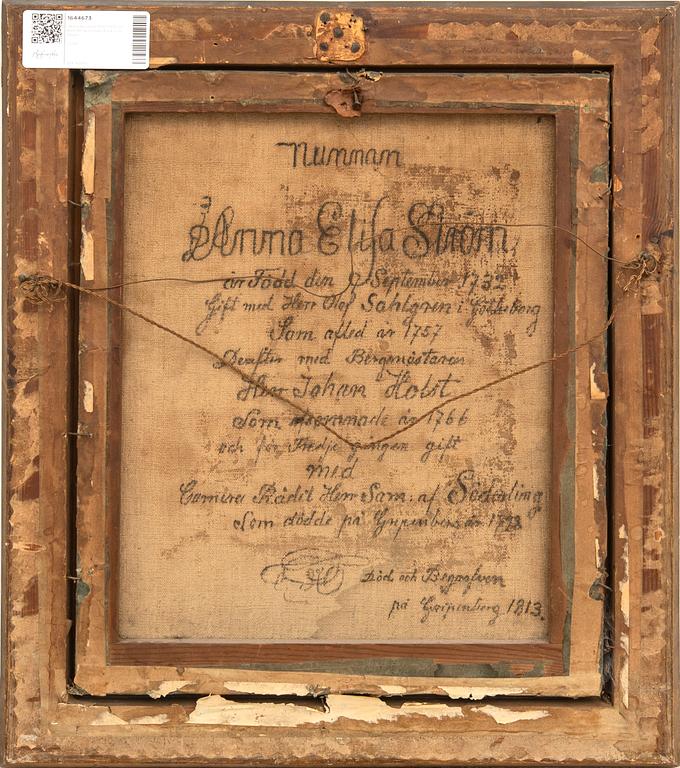 1644673
Nunnan
Anna Elisa Ström
är Född den 9 September 1732
Gift med Herr Olof Sahlgren i Götheborg
Som afled år 1757
Derefter med Bergmästaren
Herr Johan Holst
Som afsomnade år 1766
och för Tredje gången gift
med
Camera Rådet Herr Sam: af Söderling
Som dödde på Gripenberg år 1773
Död och Begrafven
på Gripenberg 1813.